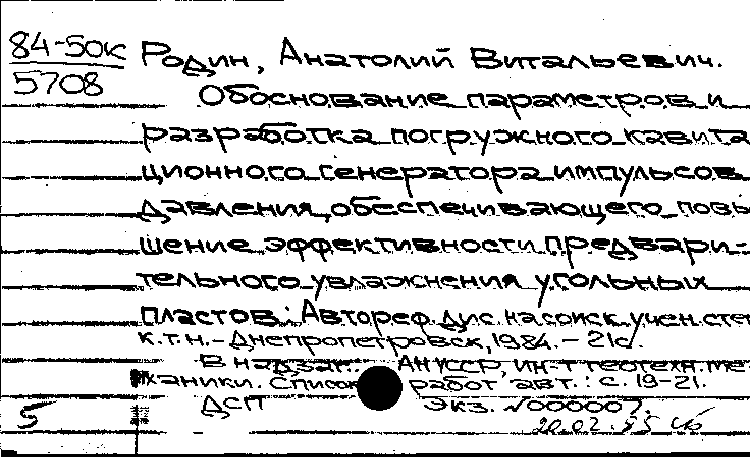 84-50к
5708
Родин, Анатолий Витальевич.
Обоснование параметров и
разработка погружного кавита
ционного генератора импульсов
давления, обеспечивающего повы
шение эффективности предвари-
тельного увлажнения угольных
пластов: Автореф. дис. на соиск. учен. степ
к.т.н. - Днепропетровск, 1984. - 21с.
В надзаг.: АН УССР, Ин-т геотехн. ме
ханики. Список работ авт.: с. 19-21.
ДСП Экз. №000007.
5
20.02.85